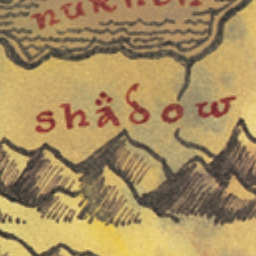 nurnen
shadow